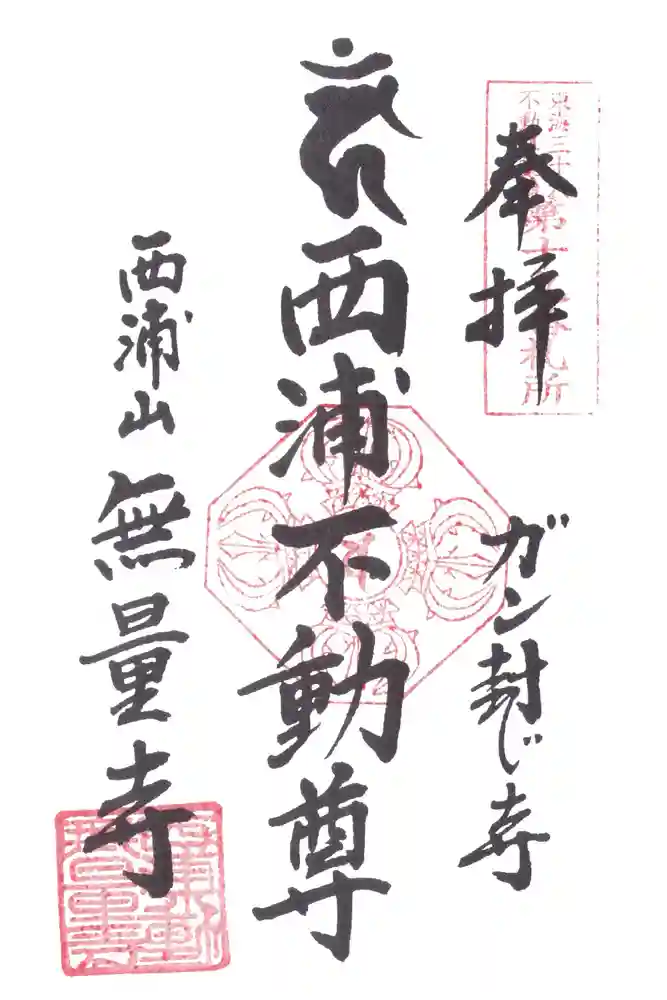 奉拝
ガン封じ寺
西浦不動尊
西浦山 無量寺